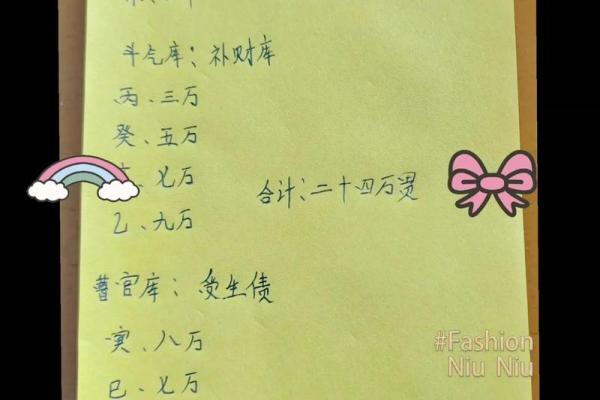 斗乞库：补财库
丙、三万
癸、五万
、七万
合计：二十四万贯
乙、九万
曹官库：受生债
寅、八万
巳、七万
#Fashion
Niu Niu